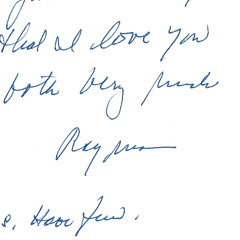 that I love you
both very much
Raymon
e. Have fun.